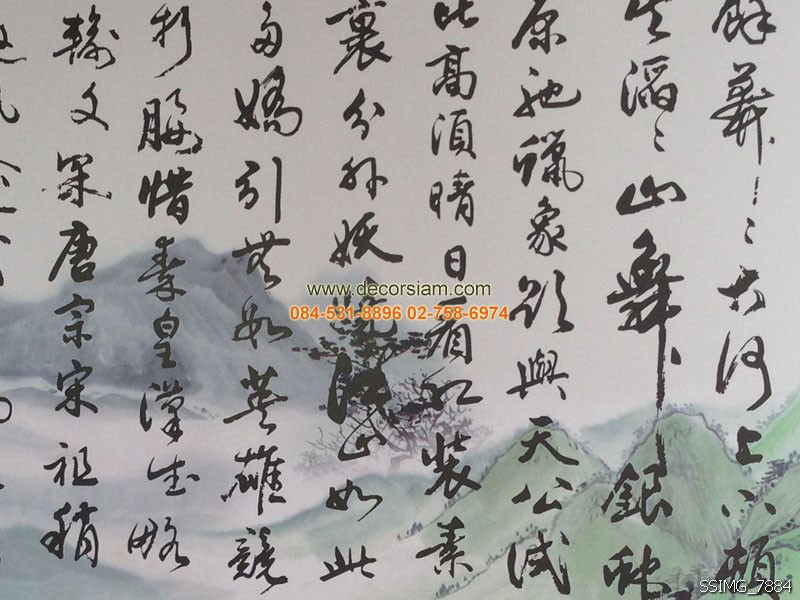 餘莽〻大河上下頓
失滔〻山舞銀蛇
原馳蠟象欲與天公試
比高須晴日看紅裝素
裹分外妖嬈江山如此
多嬌引無數英雄競
折腰惜秦皇漢武略
輸文采唐宗宋祖稍
www.decorsiam.com
084-531-8896 02-758-6974
SSIMG_7884